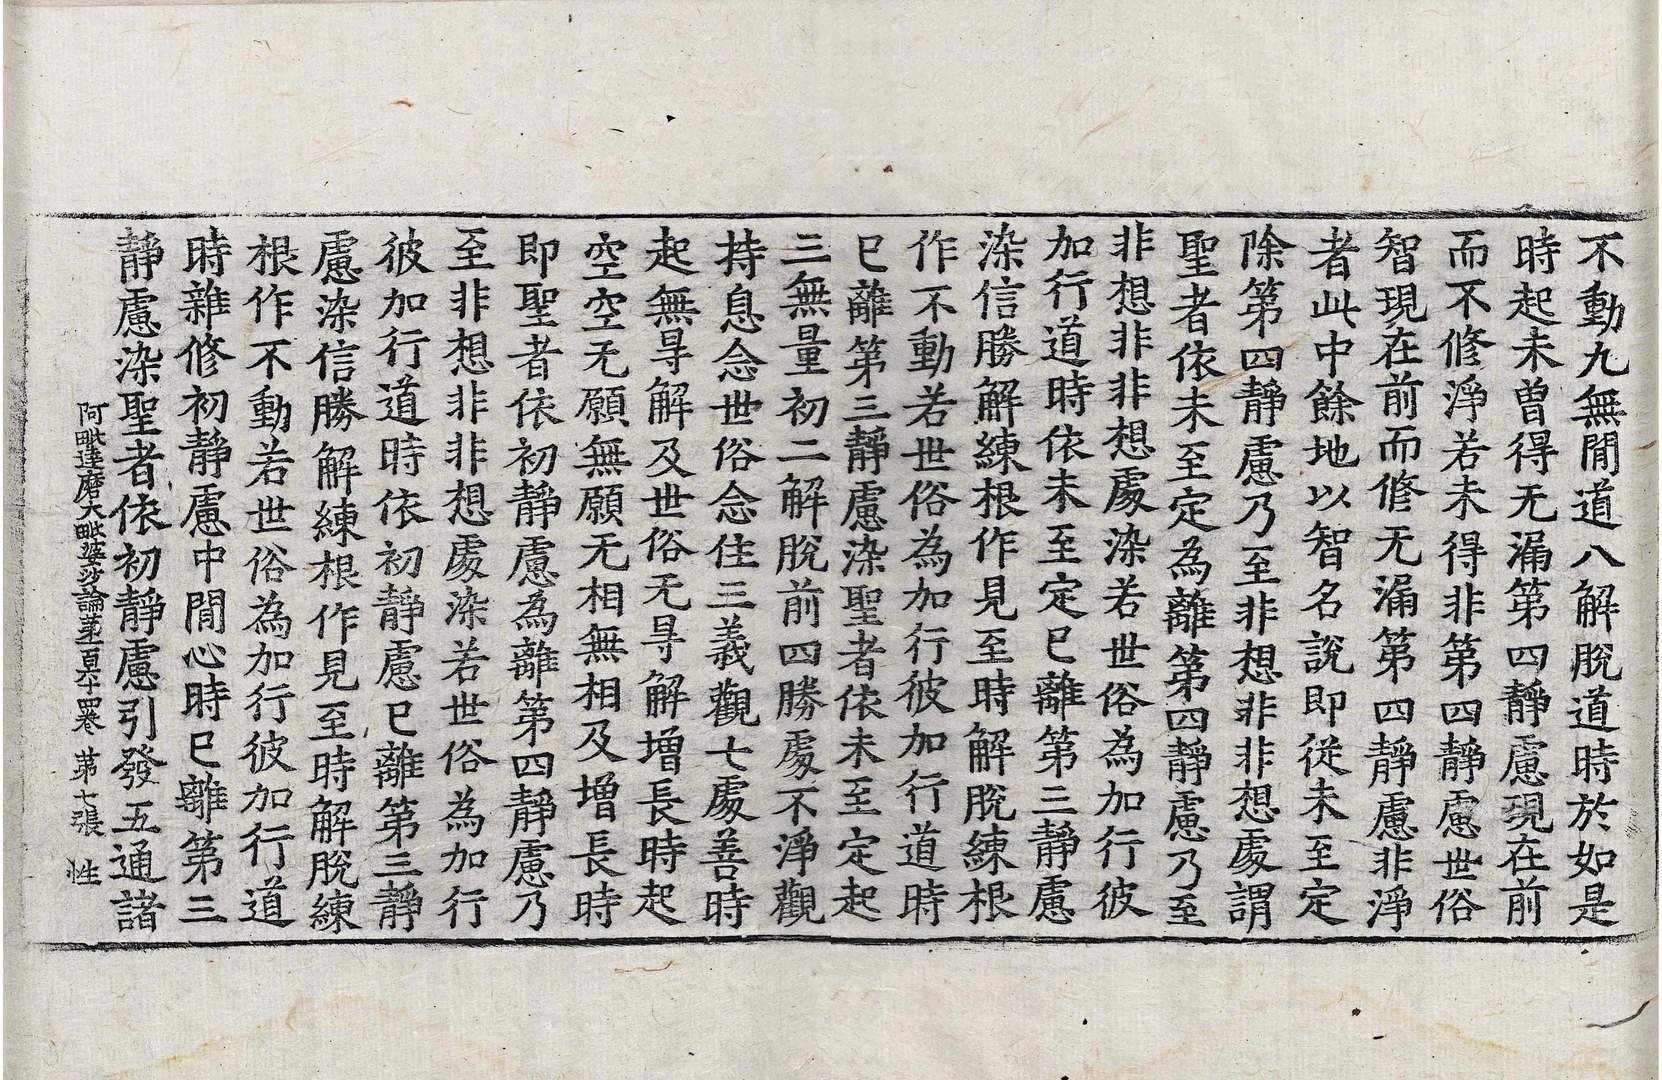 不動九無閒道八解脫道時於如是
時起未曾得无漏第四靜慮現在前
而不修淨若未得非第四靜慮世俗
智現在前而修无漏第四靜慮非淨
者此中餘地以智名說即從未至定
除第四靜慮乃至非想非非想處謂
聖者依未至定為離第四靜慮乃至
非想非非想處染若世俗為加行彼
加行道時依未至定已離第三靜慮
染信勝解練根作見至時解脫練根
作不動若世俗為加行彼加行道時
已離第三靜慮染聖者依未至定起
三無量初二解脫前四勝處不淨觀
持息念世俗念住三義觀七處善時
起無㝵解及世俗无㝵解增長時起
空空无願無願无相無相及增長時
即聖者依初靜慮為離第四靜慮乃
至非想非非想處染若世俗為加行
彼加行道時依初靜慮已離第三靜
慮染信勝解練根作見至時解脫練
根作不動若世俗為加行彼加行道
時雜修初靜慮中閒心時已離第三
靜慮染聖者依初靜慮引發五通諸
阿毗達磨大毗婆沙論第一百六十四卷 第七張 性